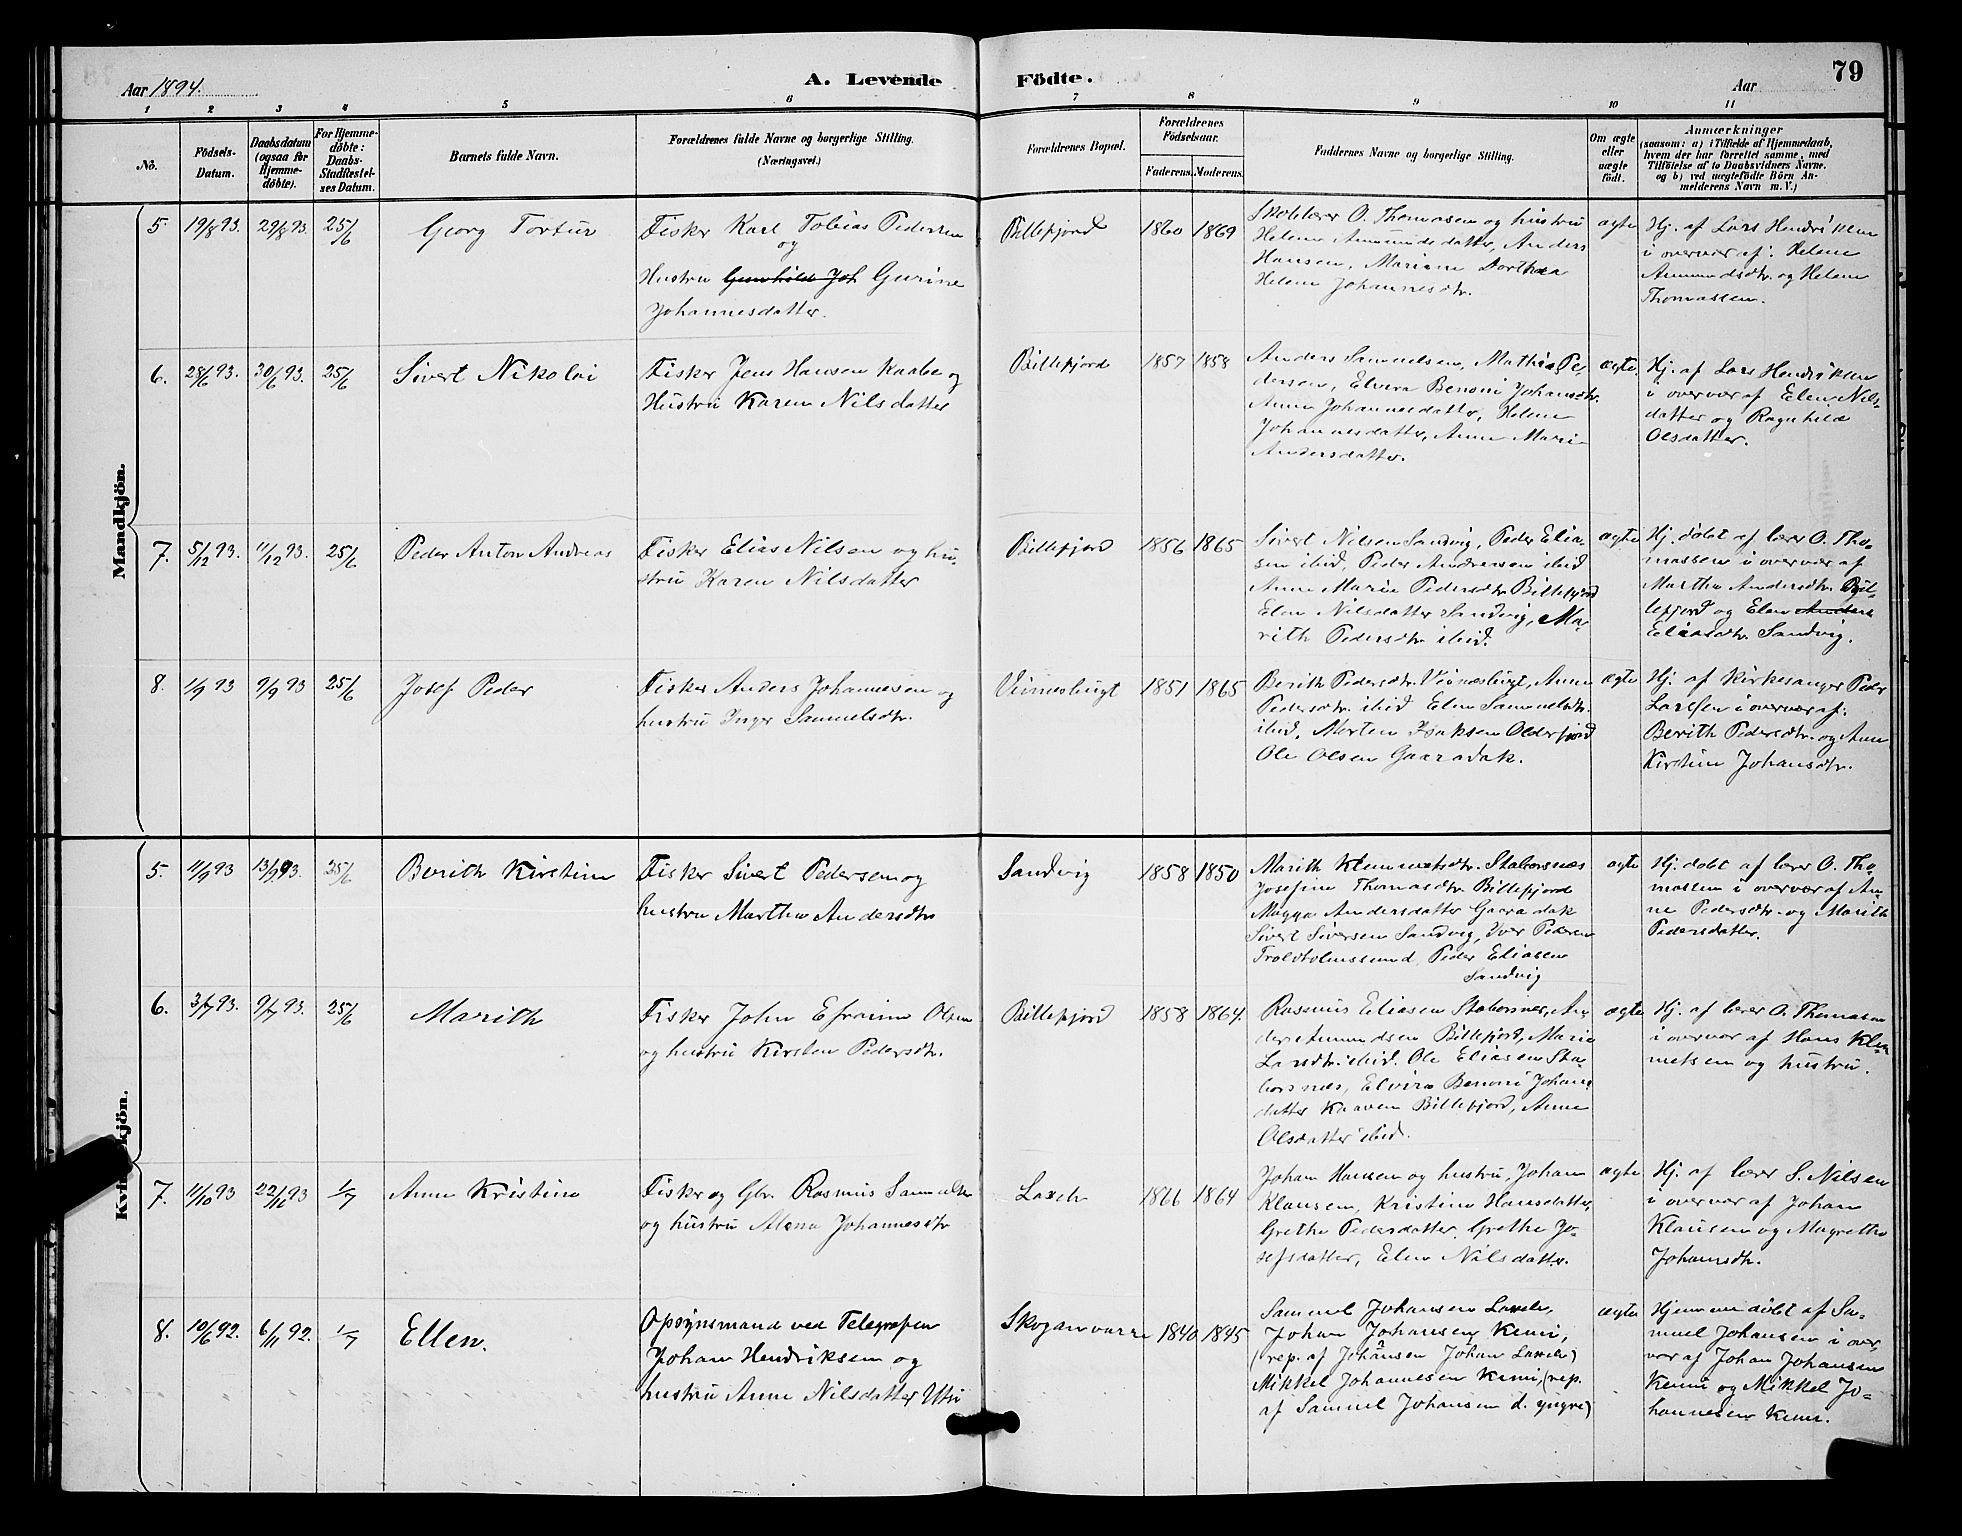 79
Aar 1894.
A. Levende Födte.
Aar
1 2 3 4 5 6 7 8 9 10 11
No.
Födsels-
Datum.
Daabsdatum
(ogsaa for
Hjemme-
döbte).
For Hjemme-
döbte:
Daabs-
Stadfestel-
ses Datum.
Barnets fulde Navn.
Forældrenes fulde Navne og borgerlige Stilling.
(Næringsvei.)
Forældrenes Bopæl.
Forældrenes
Födselsaar.
Faderens. Moderens.
Faddernes Navne og borgerlige Stilling.
Om ægte
eller
uægte
födt.
Anmærkninger
(saasom: a) i Tilfælde af Hjemmedaab,
hvem der har forrettet samme, med
Tilföielse af to Daabsvidners Navne.
og b) ved uægtefödte Börn An-
melderens Navn m. V.)
Mandkjön.
5. 19/8 93. 29/8 93. 25/6
Georg Tortur
Fisker Karl Tobias Pedersen
og
Hustru Gunhild Joh Gurine
Johannesdatter.
Billefjord
1860 1869
Skolelærer O. Thomasen og hustru
Helene Amundsdatter, Anders
Hansen, Mariane Dorthea
Helene Johannesdtr.
ægte
Hj. af Lars Hendriksen
i overvær af: Helene
Amundsdtr. og Helene
Thomassen.
6. 28/6 93. 30/6 93. 25/6
Sivert Nikolai
Fisker Jens Hansen Kaabe og
Hustru Karen Nilsdatter
Billefjord
1857 1858
Anders Samuelsen, Mathis Pe-
dersen, Elvira Benoni Johansdtr.
Anne Johannesdatter, Helene
Johannesdatter, Anne Marie
Andersdatter.
ægte.
Hj. af Lars Hendriksen
i overvær af Elen Nils-
datter og Ragnhild
Olsdatter.
7. 5/12 93. 11/12 93. 25/6
Peder Anton Andreas
Fisker Elias Nilsen og hu-
stru Karen Nilsdatter
Billefjord
1856 1865
Sivert Nilsen Sandvig, Peder Elia-
sen ibid, Peder Andreasen ibid
Anne Marie Pedersdtr Billefjord
Elen Nilsdatter Sandvig, Ma-
rith Pedersdtr ibid.
ægte
Hj. döbt af lærer O. Tho-
massen i overvær af
Martha Andersdtr. Bil-
lefjord og Elen Anders
Eliasdtr. Sandvig.
8. 1/9 93 9/9 93 25/6
Josef Peder
Fisker Anders Johannesen og
hustru Inger Samuelsdtr.
Vinnesbugt
1851 1865
Berith Pedersdtr. Viinæsbugt, Anne
Pedersdtr. ibid Elen Samuelsdtr.
ibid, Morten Isaksen Olderfjord
Ole Olsen Gaaradak.
ægte
Hj. af Kirkesanger Peder
Larsen i overvær af:
Berith Pedersdtr. og Anne
Kirstine Johansdtr.
Kvindekjön.
5. 11/9 93 13/9 93. 25/6
Berith Kirstine
Fisker Sivert Pedersen og
hustru Martha Andersdtr
Sandvig
1858 1850
Marith Klemmetsdtr. Staborsnæs
Josefine Thomasdtr. Billefjord
Magga Andersdatter Gaaradak
Sivert Siversen Sandvig, Iver Pedersen
Troldholmssund, Peder Eliasen
Sandvig
ægte
Hj. döbt af lærer O. Tho-
massen i overvær af An-
ne Pedersdtr. og Marith
Pedersdatter.
6. 3/7 93. 9/7 93. 25/6
Marith
Fisker John Efraim Olsen
og hustru Kirsten Pedersdtr.
Billefjord
1858 1864.
Rasmus Eliasen Stabornes, An-
ders Amundsen Billefjord, Marie
Larsdtr. ibid. Ole Eliasen Sta-
borsnæs, Elvira Benoni Johans
datter Kaaven Billefjord, Anne
Olsdatter ibid.
ægte
Hj. af lærer O. Thomasen
i overvær af Hans Klem
metsen og hustru.
7. 11/10 93 22/11 93 1/7
Anne Kristine
Fisker og Gbr. Rasmus Samuelsen
og hustru Alena Johannesdtr
Laxelv
1866 1864
Johan Hansen og hustru, Johan
Klausen, Kristine Hansdatter,
Grethe Pedersdatter, Grethe Jo-
sefsdatter, Elen Nilsdatter.
ægte
Hj. af lærer S. Nilsen
i overvær af Johan
Klausen og Magrethe
Johansdtr.
8. 10/6 92. 6/11 92. 1/7
Ellen.
Opsynsmand ved Telegrafen
Johan Hendriksen og
hustru Anne Nilsdatter Utsi
Skoganvarre
1840 1845
Samuel Johansen Laxelv,
Johan Johansen Kemi,
(rep. af Johansen Johan Laxelv)
Mikkel Johannesen Kemi, (rep.
af Samuel Johansen d. yngre)
ægte
Hjemmedöbt af Sa-
muel Johansen i over
vær af Johan Johansen
Kemi og Mikkel Jo-
hannesen Kemi.